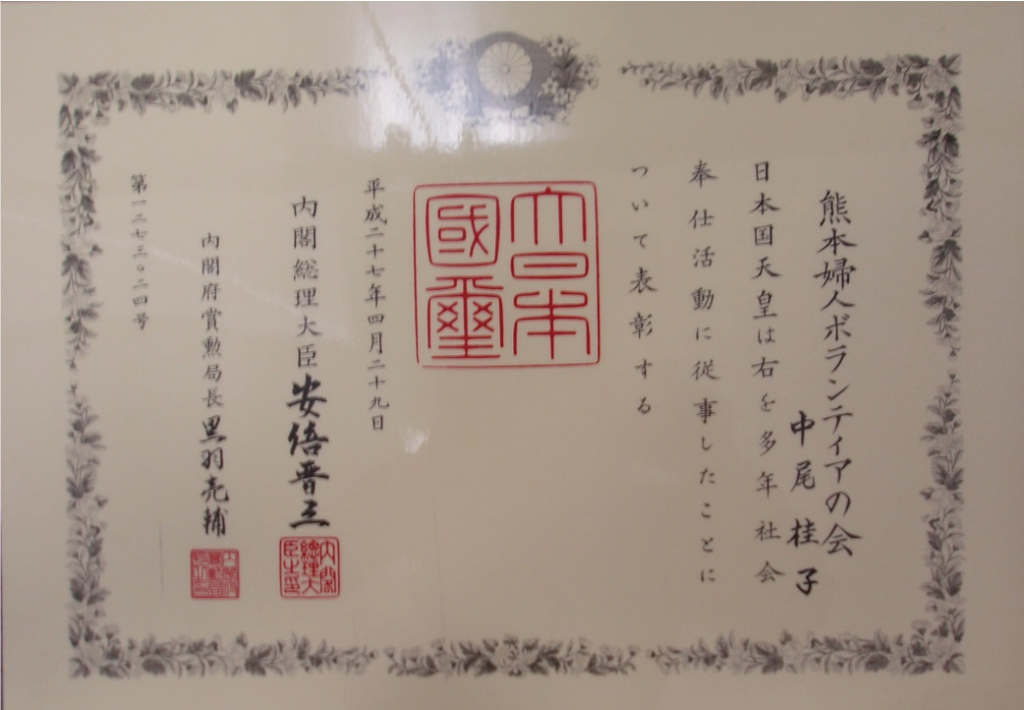 熊本婦人ボランティアの会
中尾桂子
日本国天皇は右を多年社会
奉仕活動に従事したことに
ついて表彰する
大日本
國璽
平成二十七年四月二十九日
内閣総理大臣 安倍晋三
内閣
總理大
臣之印
内閣府賞勲局長 黒羽亮輔
第一二七三〇二四号